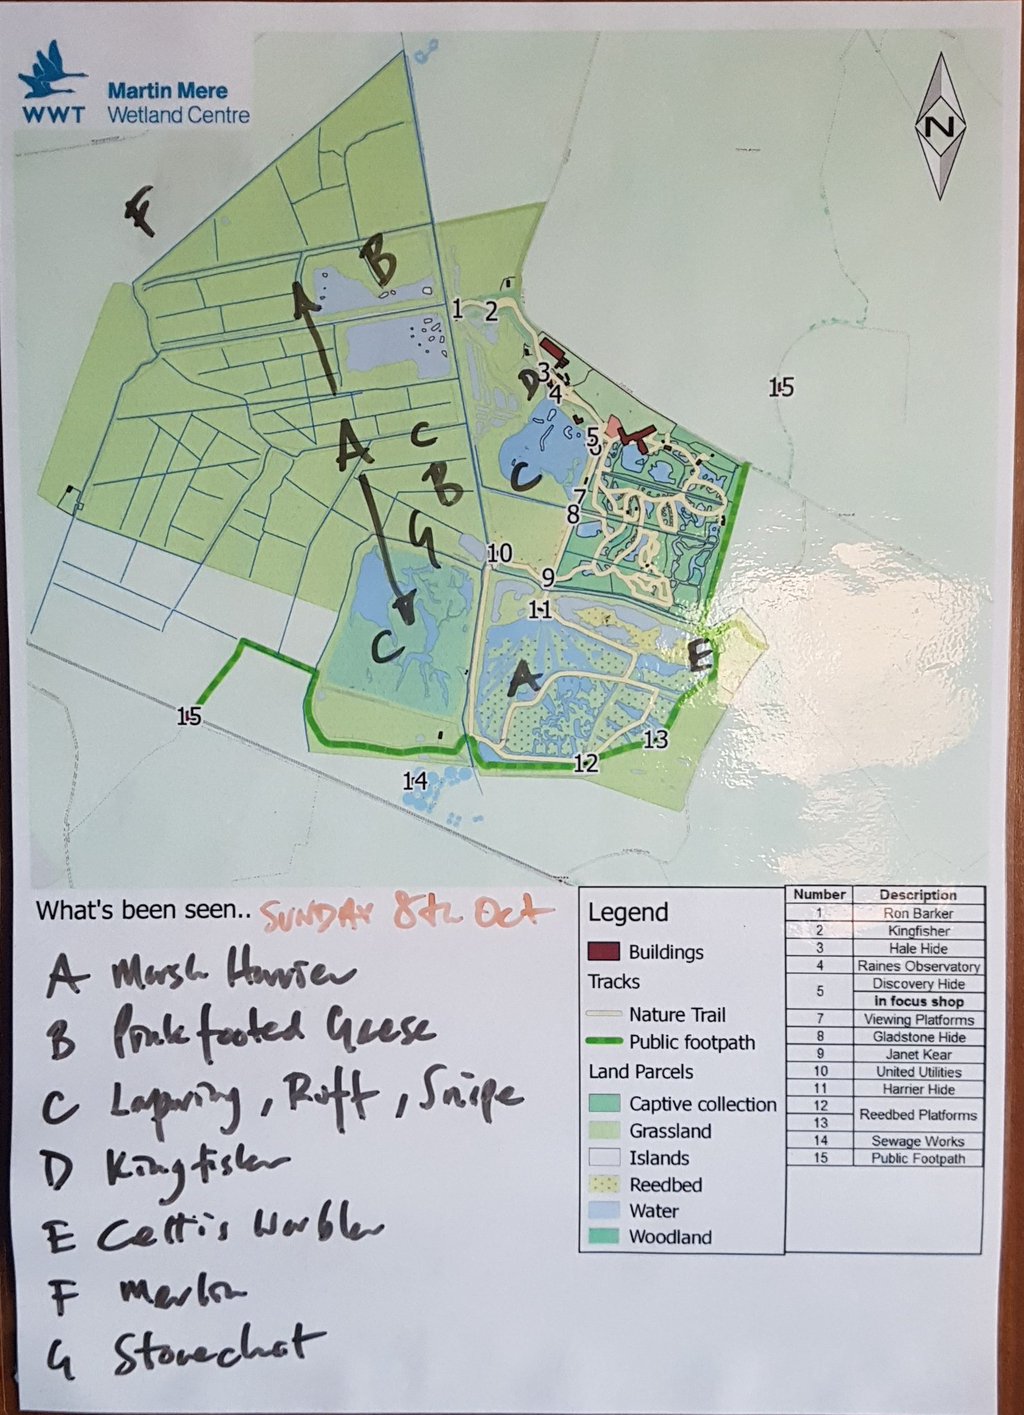 WWT
Martin Mere
Wetland Centre
N
F
B
1
2
3
D
4
15
A
C
5
6
B
C
7
8
G
10
9
11
C
A
E
15
13
12
14
What's been seen.. SUNDAY 8th Oct
A Marsh Harrier
B Pink footed Geese
C Lapwing, Ruff, Snipe
D Kingfisher
E Cettis Warbler
F Merlin
G Stonechat
Legend
Buildings
Tracks
Nature Trail
Public footpath
Land Parcels
Captive collection
Grassland
Islands
Reedbed
Water
Woodland
Number Description
1 Ron Barker
2 Kingfisher
3 Hale Hide
4 Raines Observatory
5 Discovery Hide
in focus shop
7 Viewing Platforms
8 Gladstone Hide
9 Janet Kear
10 United Utilities
11 Harrier Hide
12
Reedbed Platforms
13
14 Sewage Works
15 Public Footpath